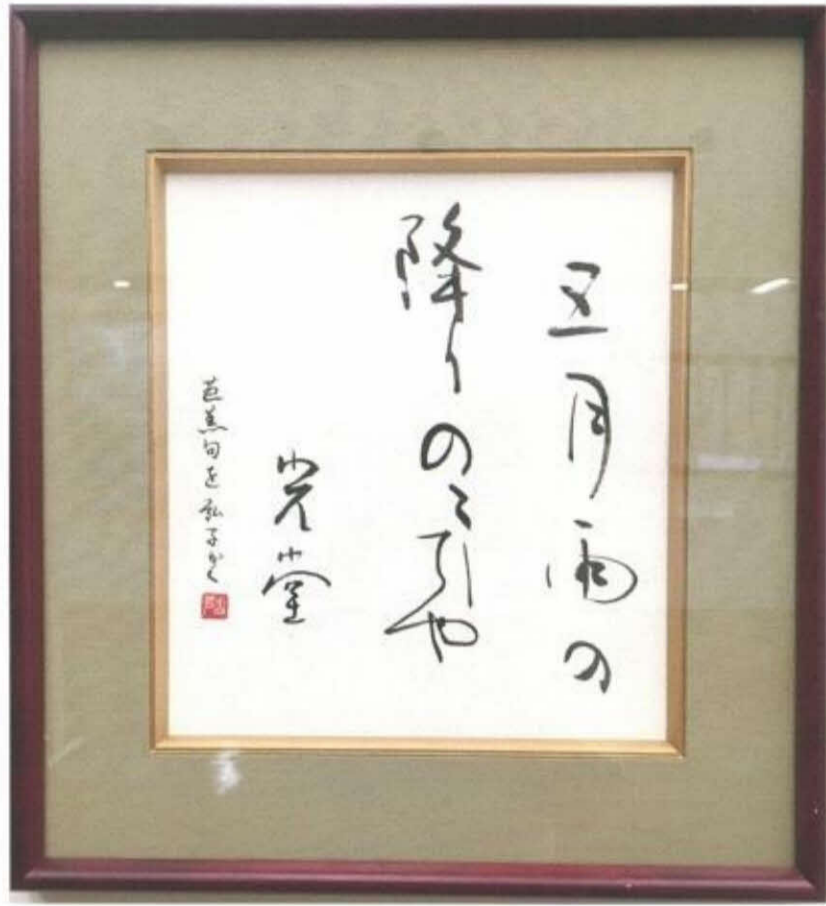 五月雨の
降りのこしてや
光堂
芭蕉句を 弘子かく